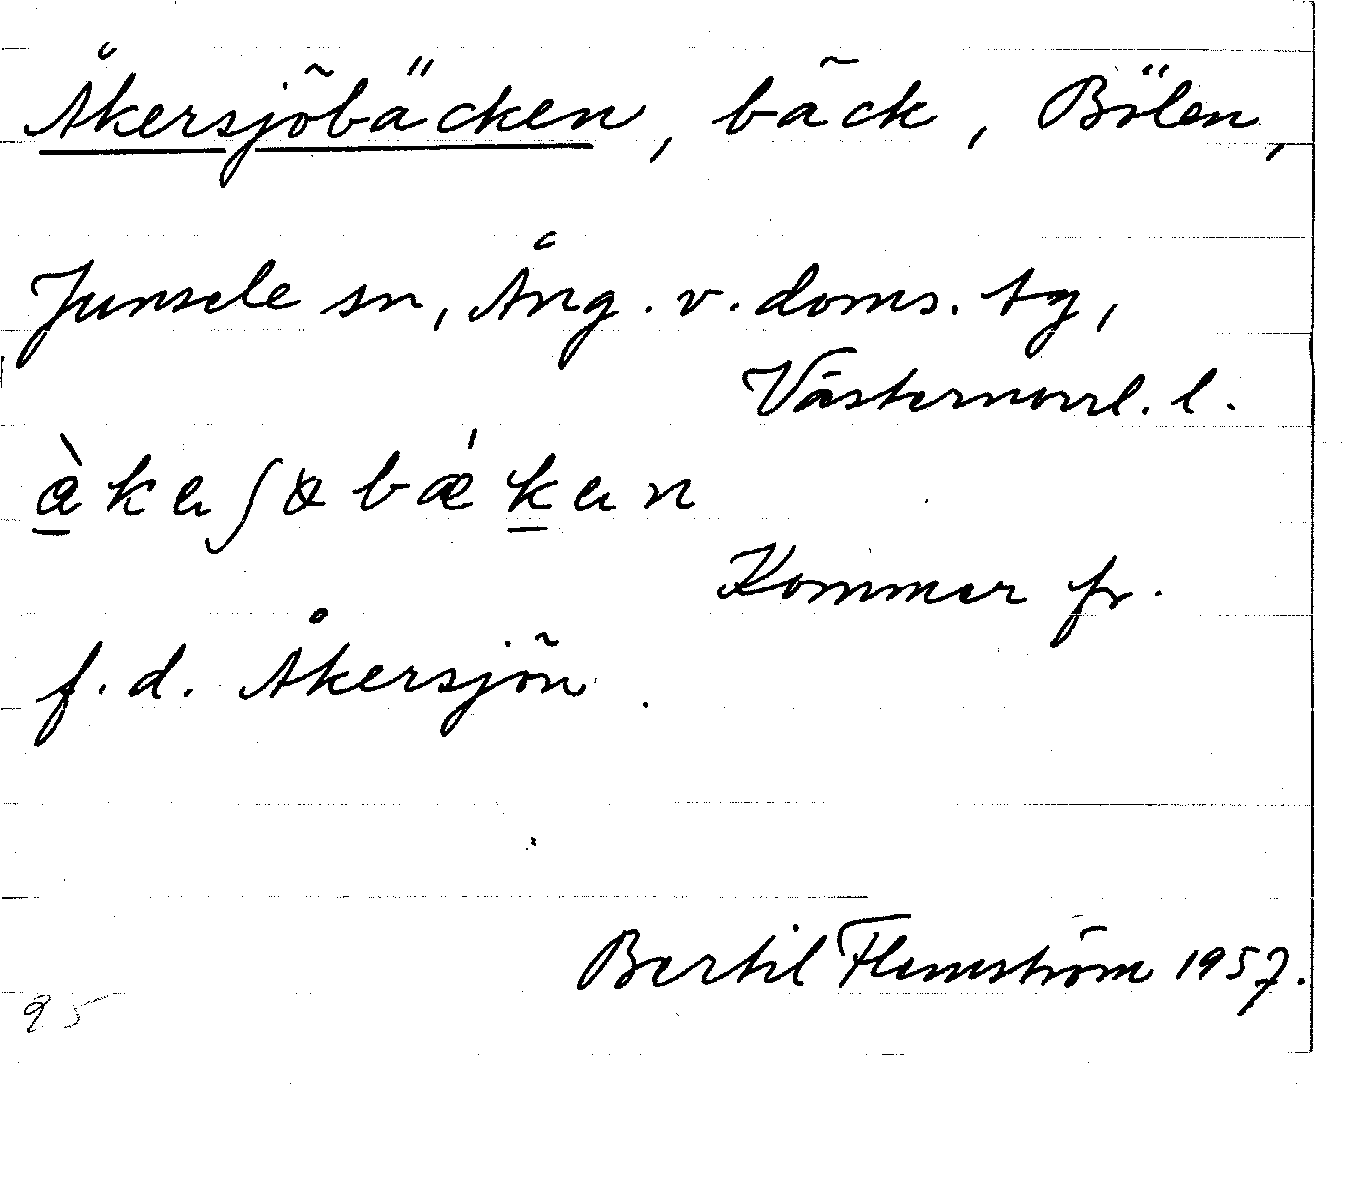 Åkersjöbäcken, bäck, Bölen,
Junsele sn, Ång. v. doms. tg,
Västernorrl. l.
Kommer fr.
f. d. Åkersjön.
Bertil Flemström 1957.
95